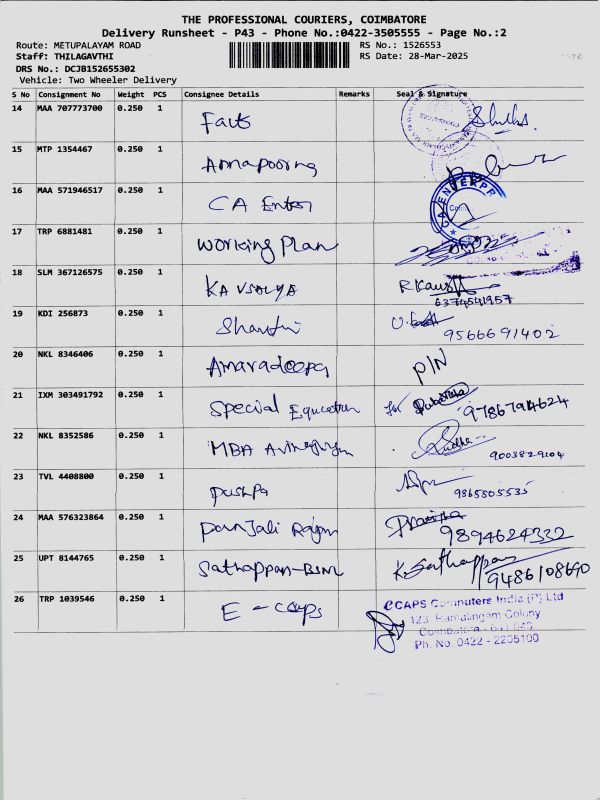 THE PROFESSIONAL COURIERS, COIMBATORE
Delivery Runsheet - P43 - Phone No.:0422-3505555 - Page No.:2
Route: METUPALAYAM ROAD RS No.: 1526553
Staff: THILAGAVTHI RS Date: 28-Mar-2025
DRS No.: DCJB152655302
Vehicle: Two Wheeler Delivery
S No Consignment No Weight PCS Consignee Details Remarks Seal & Signature
14 MAA 707773700 0.250 1 Facts
15 MTP 1354467 0.250 1 Annapoorna
16 MAA 571946517 0.250 1 CA Enter
17 TRP 6881481 0.250 1 Working Plan
18 SLM 367126575 0.250 1 KAVSALYA R Kausa
6374541957
19 KDI 256873 0.250 1 Shanthi 9566691402
20 NKL 8346406 0.250 1 Amaradeepa P/N
21 IXM 303491792 0.250 1 Special for 9786794624
22 NKL 8352586 0.250 1 MBA Sudha 9003829104
23 TVL 4408800 0.250 1 pushpa 9865505535
24 MAA 576323864 0.250 1 panjali 9894624332
25 UPT 8144765 0.250 1 Sathappan-BSM K. Sathappan
9486108690
26 TRP 1039546 0.250 1 E-caps eCAPS Computers India (P) Ltd
123, Ramalingam Colony
Coimbatore - 641 043
Ph. No. 0422 - 2205100